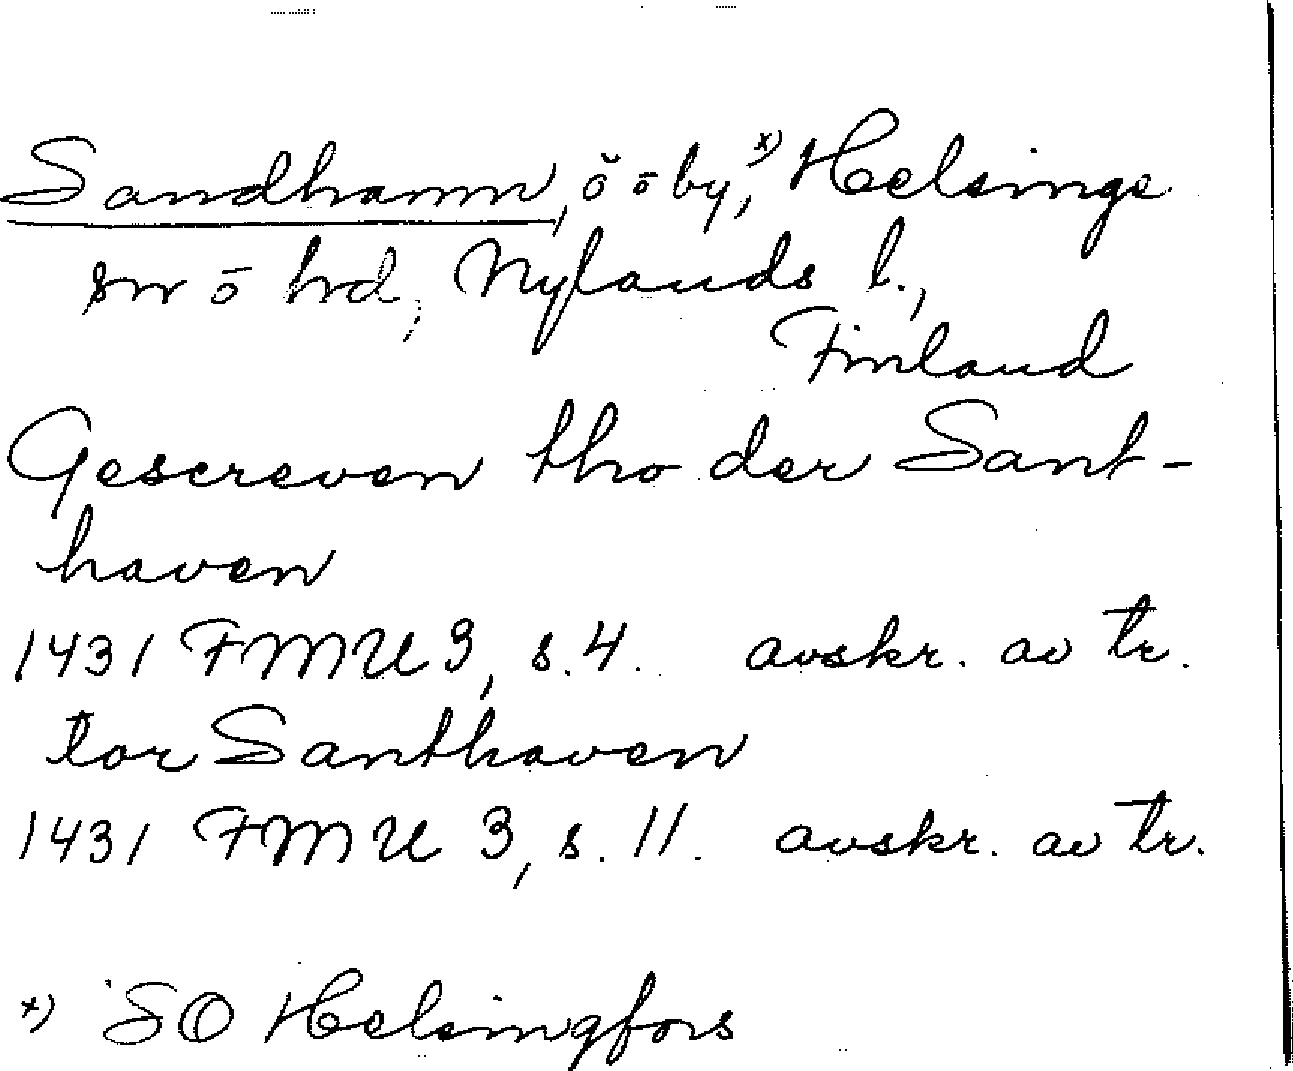 Sandhamn, ö o by,*) Helsinge
sn o hd, Nylands l.,
Finland
Gescreven tho der Sant-
haven
1431 FMU 3, s. 4. avskr. av tr.
tor Santhaven
1431 FMU 3, s. 11. avskr. av tr.
*) SO Helsingfors